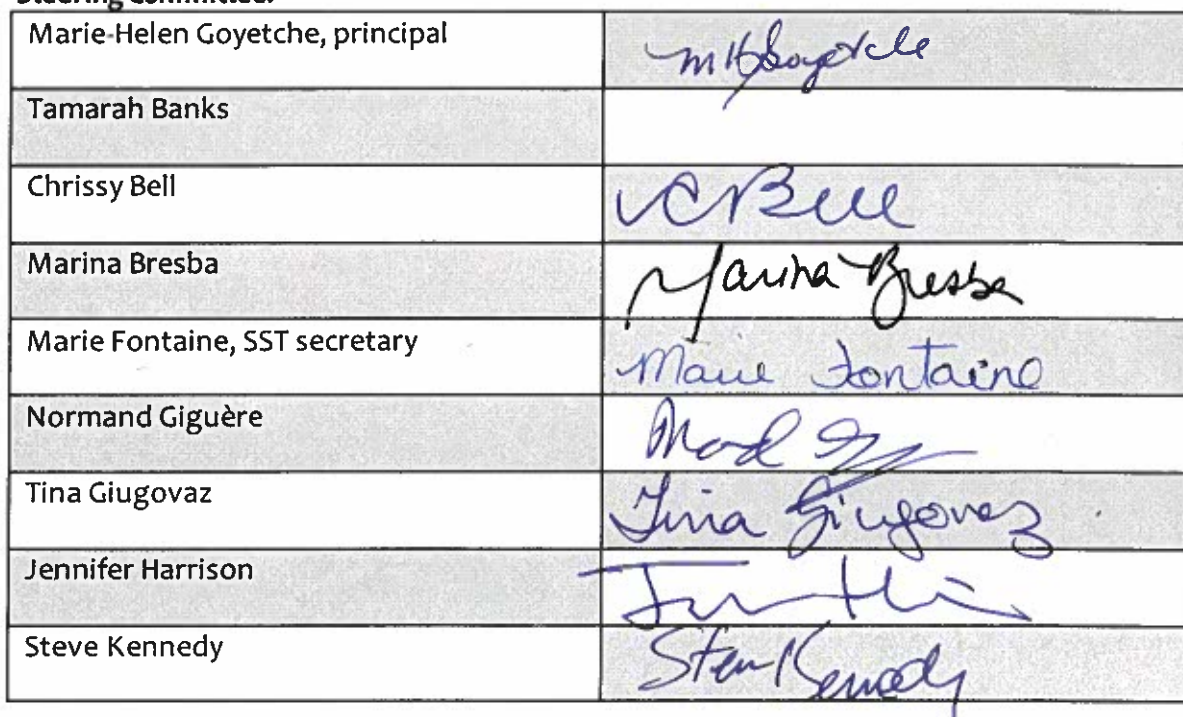 Steering Committee:
Marie-Helen Goyetche, principal
MHGoyetche
Tamarah Banks
Chrissy Bell
CBell
Marina Bresba
Marina Bresba
Marie Fontaine, SST secretary
Marie Fontaine
Normand Giguère
Tina Giugovaz
Tina Giugovaz
Jennifer Harrison
Steve Kennedy
Steve Kennedy